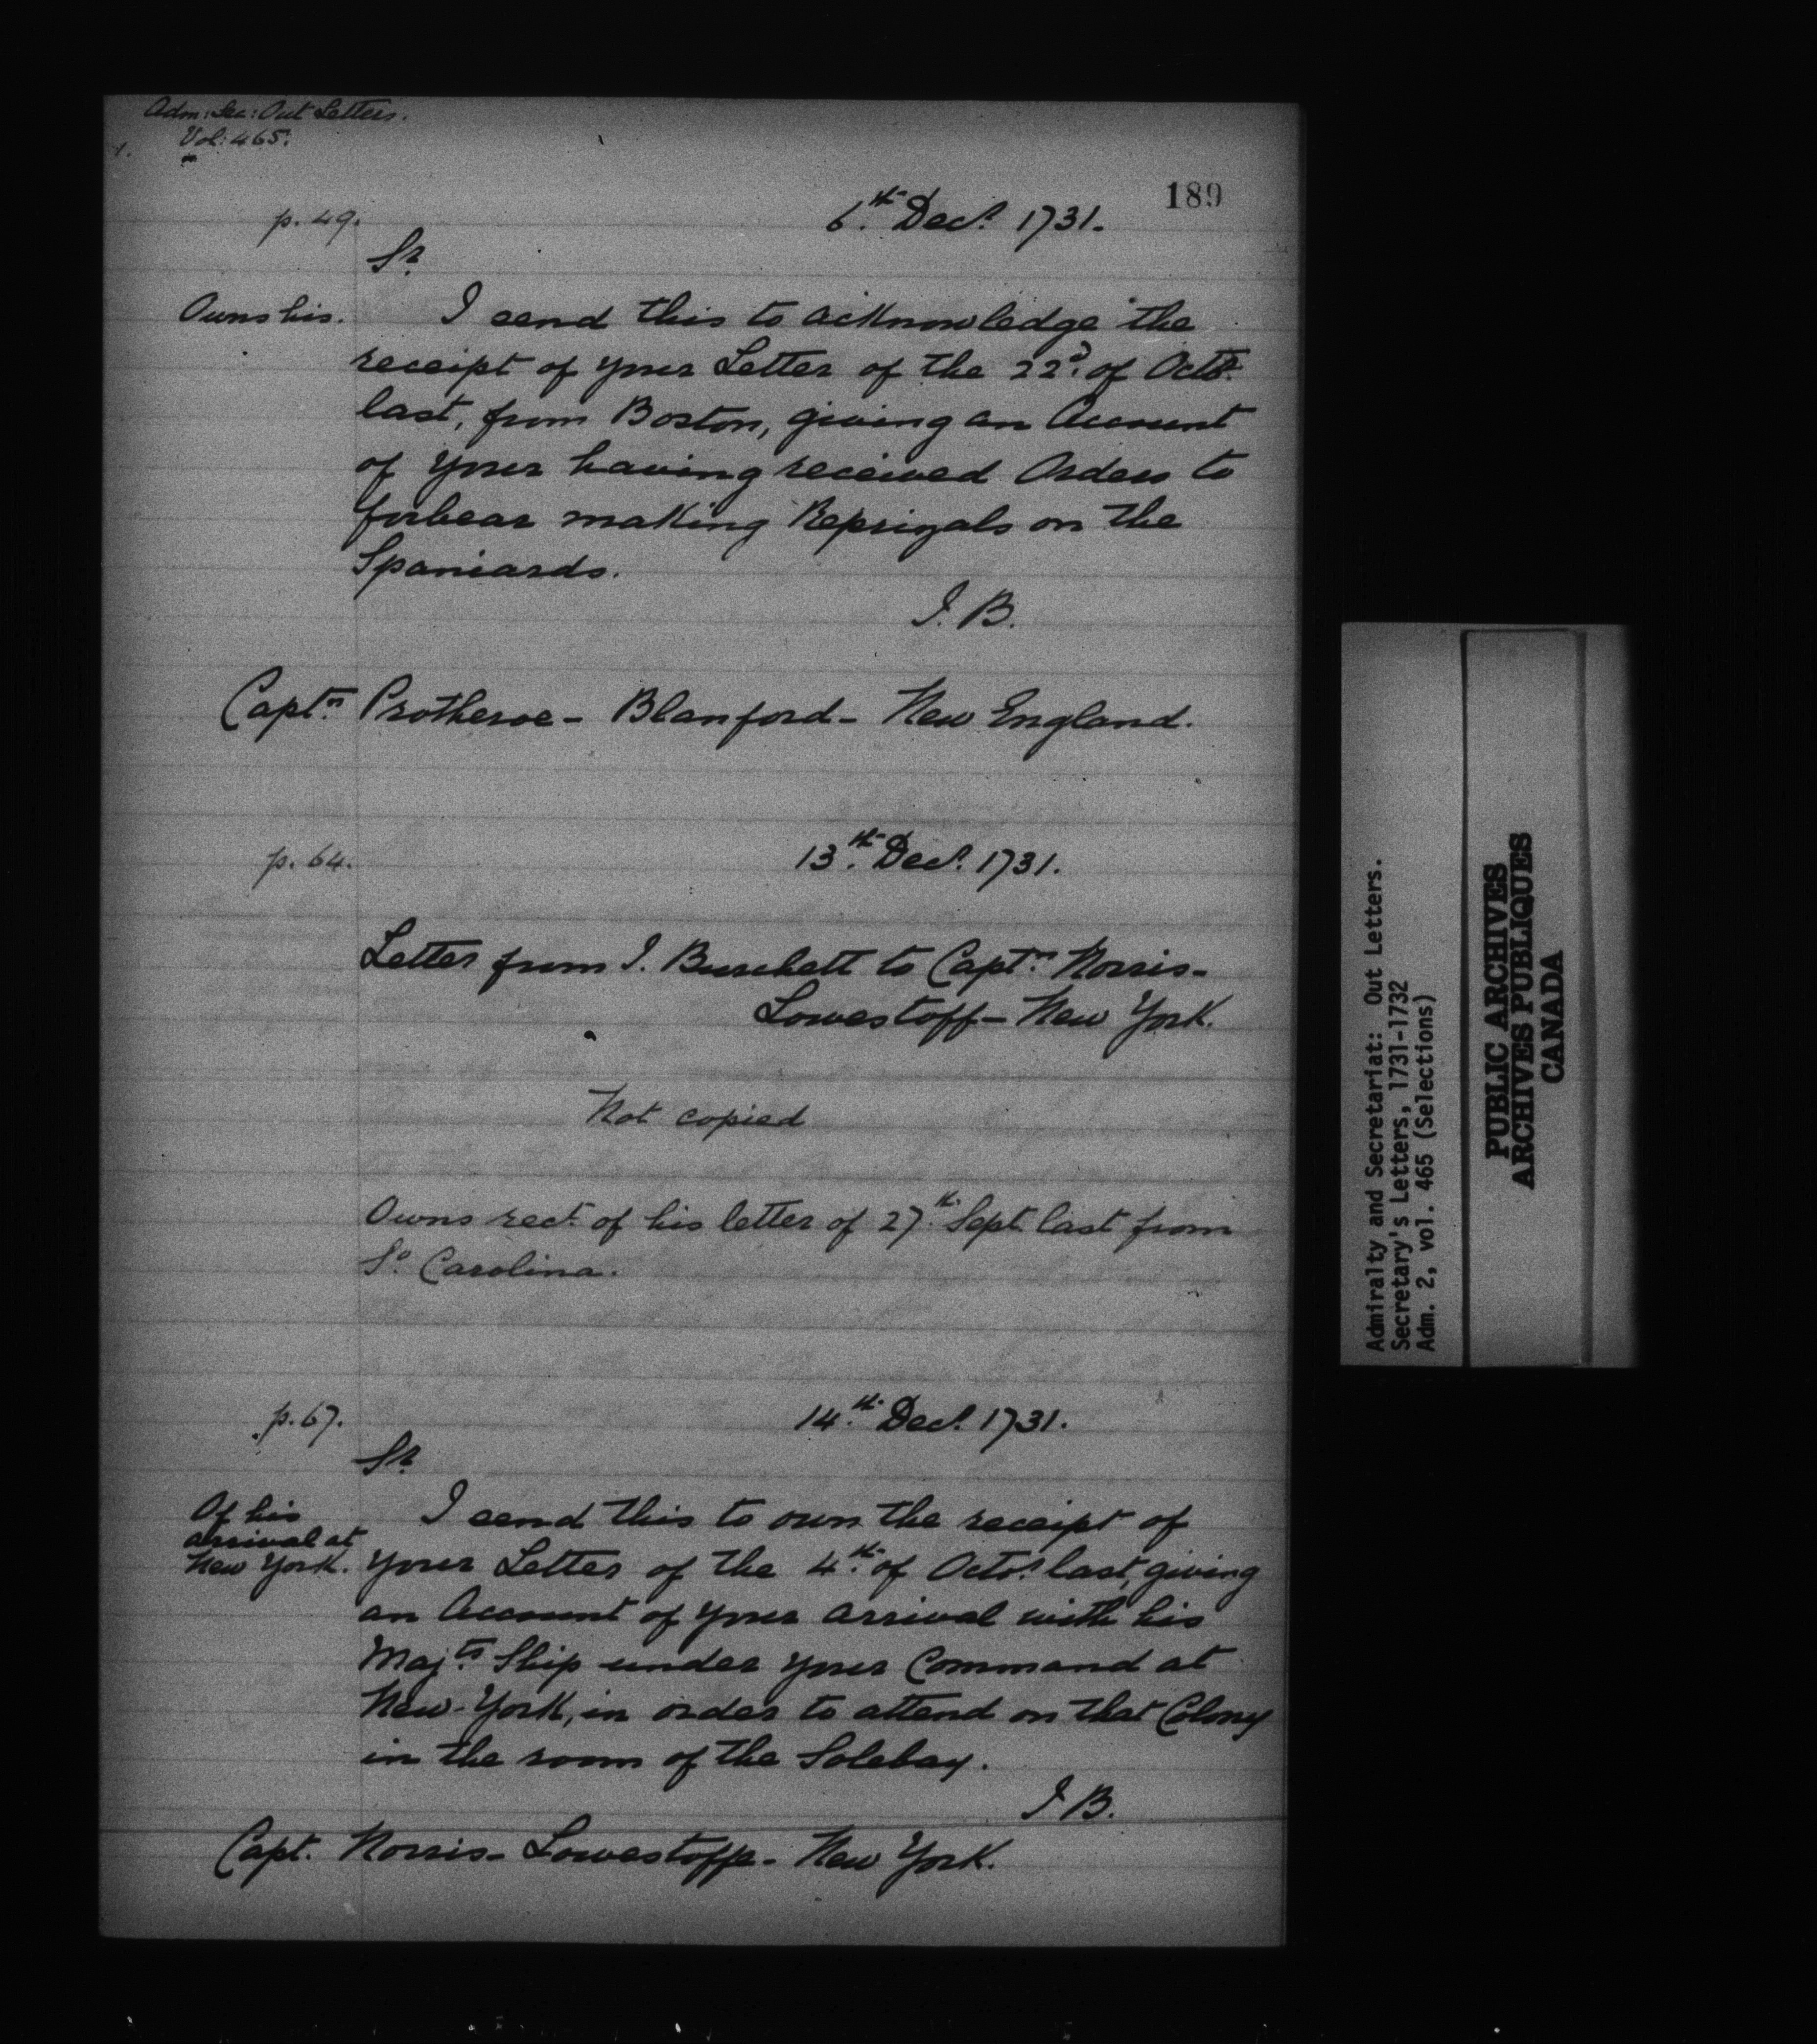 Adm: Sec: Out Letters.
Vol: 465.
1.
189
p. 49.
6th. Decr. 1731.
Sr.
Owns his.
I send this to acknowledge the
receipt of your Letter of the 22d. of Octr.
last, from Boston, giving an Account
of your having received Orders to
forbear making Reprizals on the
Spaniards.
I. B.
Captn. Protheroe - Blanford - New England.
p. 64.
13th. Decr. 1731.
Letter from I. Burchett to Captn. Norris-
Lowestoff - New York.
Not copied
Owns rect. of his letter of 27th. Sept. last from
So. Carolina.
p. 67.
14th. Decr. 1731.
Sr.
Of his
arrival at
New York.
I send this to own the receipt of
your Letter of the 4th. of Octor. last, giving
an Account of your arrival with his
Majts. Ship under your Command at
New-York, in order to attend on that Colony
in the room of the Solebay.
I B.
Capt. Norris - Lowestoffe - New York.
Admiralty and Secretariat: Out Letters.
Secretary's Letters, 1731-1732
Adm. 2, vol. 465 (Selections)
PUBLIC ARCHIVES
ARCHIVES PUBLIQUES
CANADA